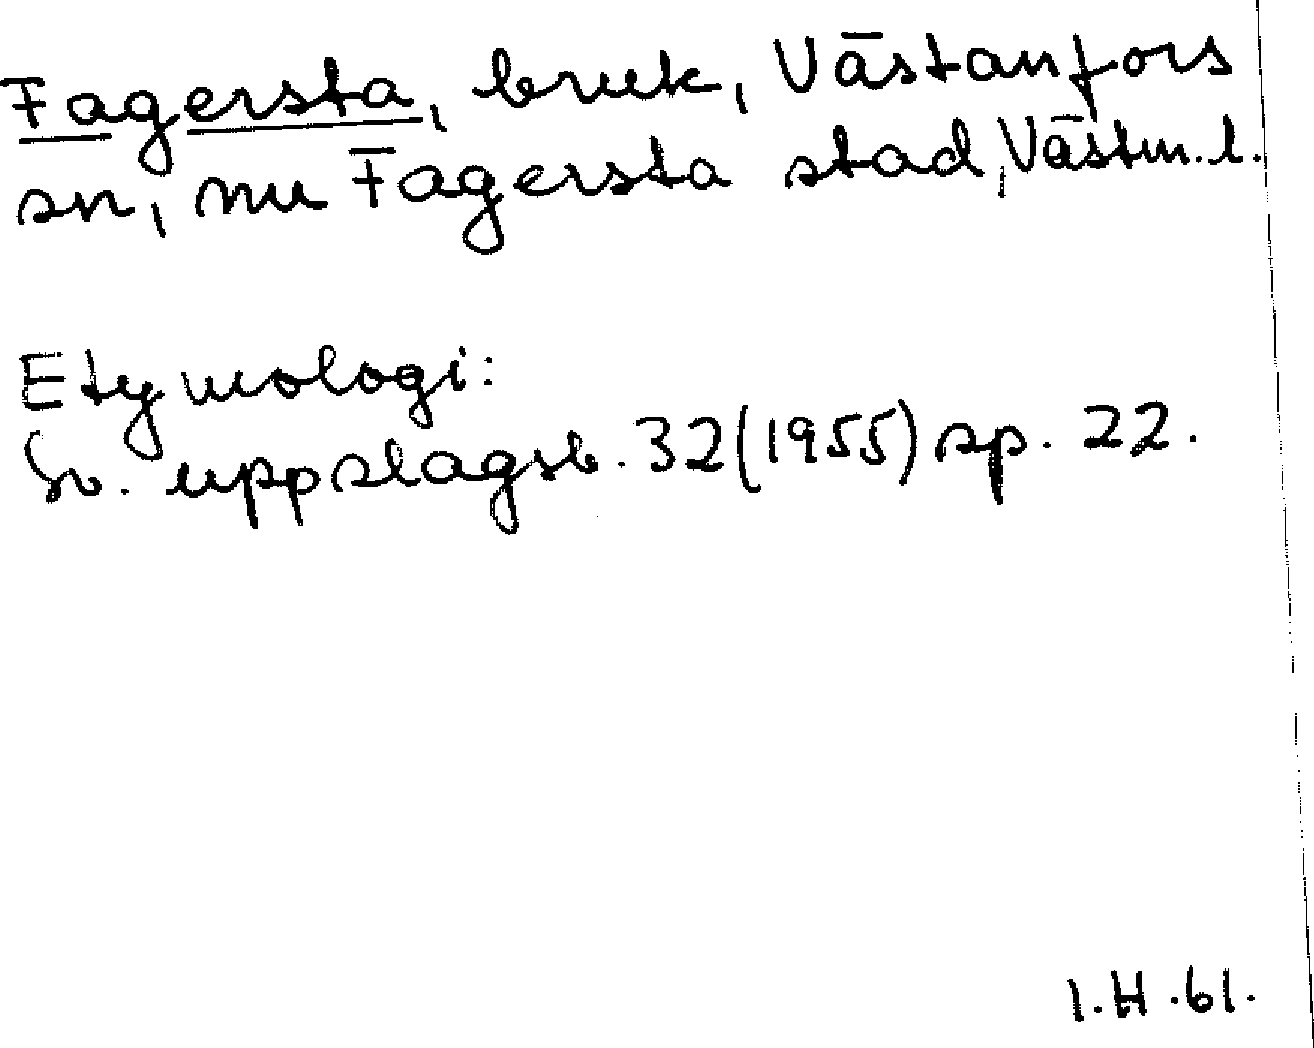 Fagersta, bruk, Västanfors
sn, nu Fagersta stad, Västm.l.
Etymologi:
Sv. uppslagsb. 32(1955) sp. 22.
I.H.61.